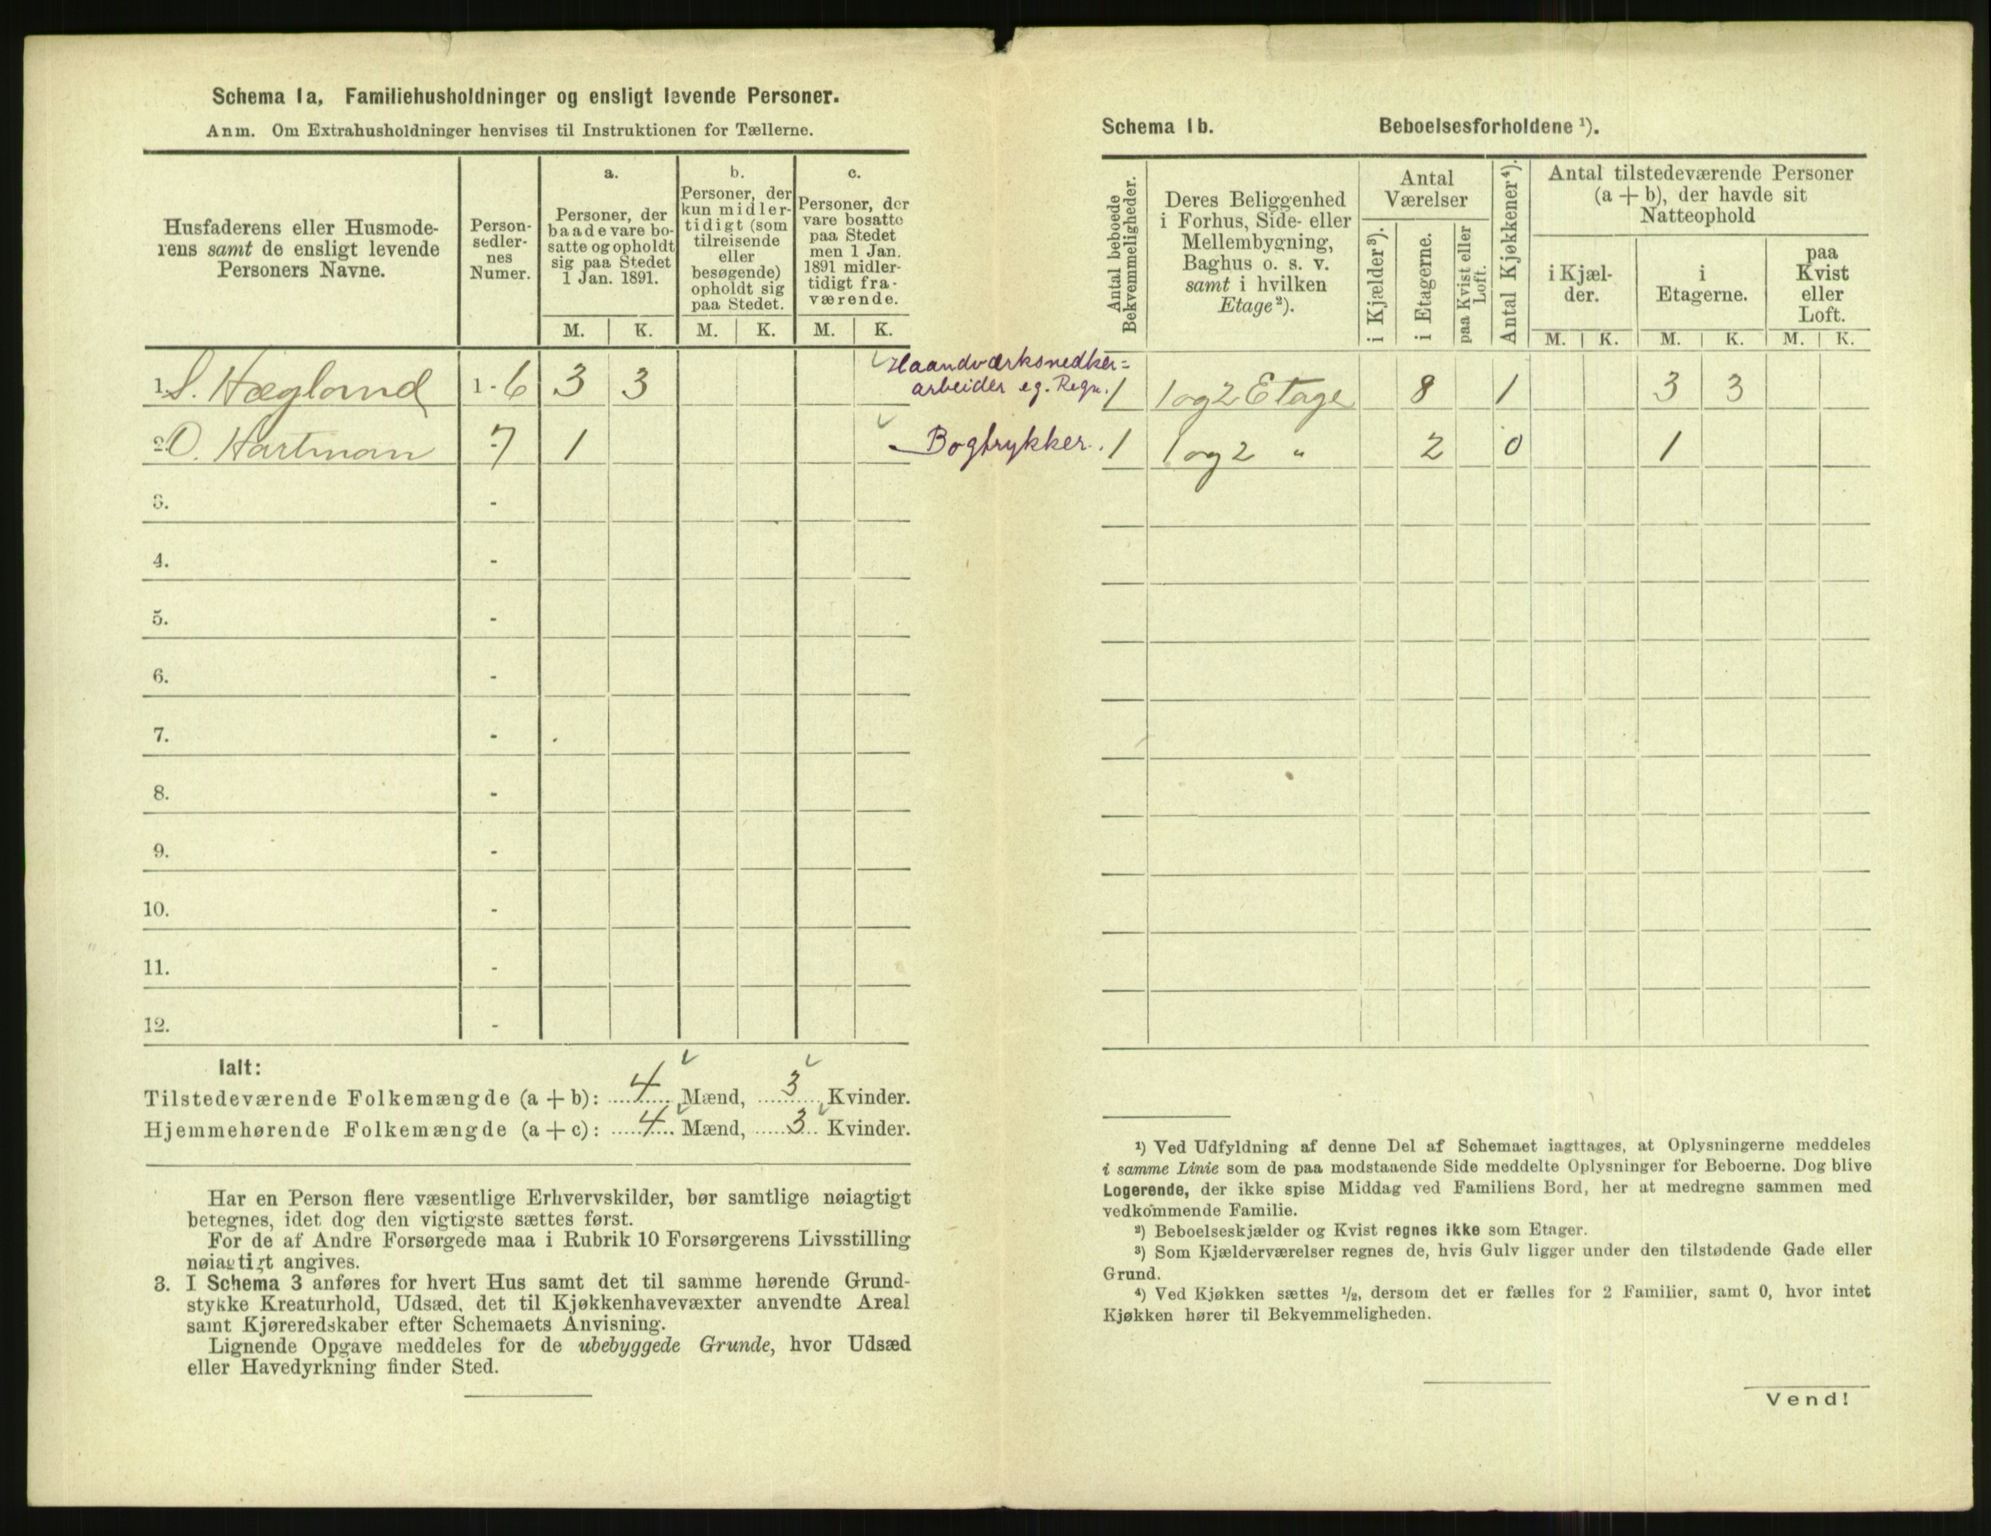 Schema 1a, Familiehusholdninger og ensligt levende Personer.
Anm. Om Extrahusholdninger henvises til Instruktionen for Tællerne.
Husfaderens eller Husmode-
rens samt de ensligt levende
Personers Navne.
Person-
sedler-
nes
Numer.
a.
Personer, der
baade vare bo-
satte og opholdt
sig paa Stedet
1 Jan. 1891.
b.
Personer, der
kun midler-
tidigt (som
tilreisende
eller
besøgende)
opholdt sig
paa Stedet.
c.
Personer, der
vare bosatte
paa Stedet
men 1 Jan.
1891 midler-
tidigt fra-
værende.
M. K. M. K. M. K.
1. S. Hæglund 1-6 3 3
2. O. Hartman 7 1
3. -
4. -
5. -
6. -
7. -
8. -
9. -
10. -
11. -
12. -
Ialt:
Tilstedeværende Folkemængde (a + b): 4 Mænd, 3 Kvinder.
Hjemmehørende Folkemængde (a + c): 4 Mænd, 3 Kvinder.
Har en Person flere væsentlige Erhvervskilder, bør samtlige nøiagtigt
betegnes, idet dog den vigtigste sættes først.
For de af Andre Forsørgede maa i Rubrik 10 Forsørgerens Livsstilling
nøiagtigt angives.
3. I Schema 3 anføres for hvert Hus samt det til samme hørende Grund-
stykke Kreaturhold, Udsæd, det til Kjøkkenhavevæxter anvendte Areal
samt Kjøreredskaber efter Schemaets Anvisning.
Lignende Opgave meddeles for de ubebyggede Grunde, hvor Udsæd
eller Havedyrkning finder Sted.
Schema 1b. Beboelsesforholdene ¹).
Antal beboede
Bekvemmeligheder.
Deres Beliggenhed
i Forhus, Side- eller
Mellembygning,
Baghus o. s. v.
samt i hvilken
Etage²).
Antal
Værelser
i Kjælder³).
i Etagerne.
paa Kvist eller
Loft.
Antal Kjøkkener⁴).
Antal tilstedeværende Personer
(a + b), der havde sit
Natteophold
i Kjæl-
der.
i
Etagerne.
paa
Kvist
eller
Loft.
M. K. M. K. M. K.
Haandværksnedker=
arbeider eg. Regn. 1 1 og 2 Etage 8 1 3 3
Bogtrykker. 1 1 og 2 " 2 0 1
¹) Ved Udfyldning af denne Del af Schemaet iagttages, at Oplysningerne meddeles
i samme Linie som de paa modstaaende Side meddelte Oplysninger for Beboerne. Dog blive
Logerende, der ikke spise Middag ved Familiens Bord, her at medregne sammen med
vedkommende Familie.
²) Beboelseskjælder og Kvist regnes ikke som Etager.
³) Som Kjælderværelser regnes de, hvis Gulv ligger under den tilstødende Gade eller
Grund.
⁴) Ved Kjøkken sættes ½, dersom det er fælles for 2 Familier, samt 0, hvor intet
Kjøkken hører til Bekvemmeligheden.
Vend!